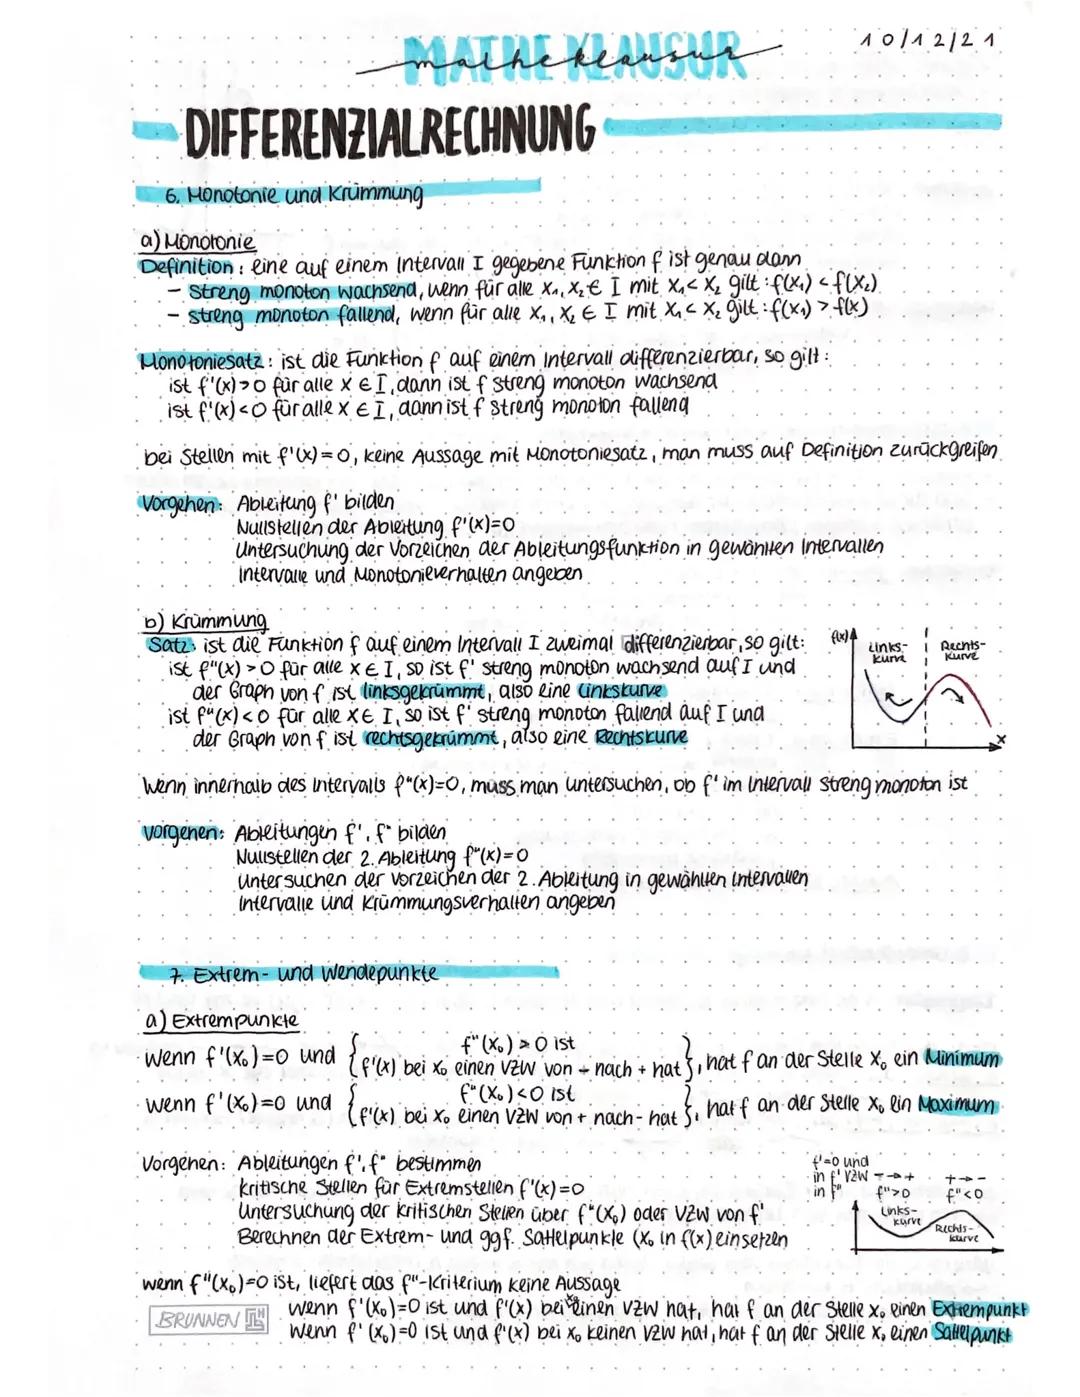 MATHE KLAUSUR
mathe klausur
10/12/21
DIFFERENZIALRECHNUNG
6. Monotonie und Krümmung
a) Monotonie
Definition: eine auf einem Intervall I gegebene Funktion f ist genau dann
- streng monoton wachsend, wenn für alle x₁, x₂ ∈ I mit x₁ < x₂ gilt: f(x₁) < f(x₂)
- streng monoton fallend, wenn für alle x₁, x₂ ∈ I mit x₁ < x₂ gilt: f(x₁) > f(x)
Monotoniesatz: ist die Funktion f auf einem Intervall differenzierbar, so gilt:
ist f'(x) > 0 für alle x ∈ I, dann ist f streng monoton wachsend
ist f'(x) < 0 für alle x ∈ I, dann ist f streng monoton fallend
bei Stellen mit f'(x) = 0, keine Aussage mit Monotoniesatz, man muss auf Definition zurückgreifen
Vorgehen: Ableitung f' bilden
Nullstellen der Ableitung f'(x)=0
Untersuchung der Vorzeichen der Ableitungsfunktion in gewählten Intervallen
Intervalle und Monotonieverhalten angeben
b) Krümmung
Satz: ist die Funktion f auf einem Intervall I zweimal differenzierbar, so gilt:
ist f"(x) > 0 für alle x ∈ I, so ist f' streng monoton wachsend auf I und
der Graph von f ist linksgekrümmt, also eine Linkskurve
ist f"(x) < 0 für alle x ∈ I, so ist f' streng monoton fallend auf I und
der Graph von f ist rechtsgekrümmt, also eine Rechtskurve
f(x)
Links-
kurve
Rechts-
kurve
x
Wenn innerhalb des Intervalls f"(x)=0, muss man untersuchen, ob f' im Intervall streng monoton ist
Vorgehen: Ableitungen f', f" bilden
Nullstellen der 2. Ableitung f"(x)=0
Untersuchen der Vorzeichen der 2. Ableitung in gewählten Intervallen
Intervalle und Krümmungsverhalten angeben
7. Extrem- und Wendepunkte
a) Extrempunkte
wenn f'(x₀)=0 und { f"(x₀) > 0 ist
f'(x) bei x₀ einen VZW von - nach + hat }, hat f an der Stelle x₀ ein Minimum
wenn f'(x₀)=0 und { f"(x₀) < 0 ist
f'(x) bei x₀ einen VZW von + nach - hat }, hat f an der Stelle x₀ ein Maximum
Vorgehen: Ableitungen f', f" bestimmen
kritische Stellen für Extremstellen f'(x)=0
Untersuchung der kritischen Stellen über f"(x₀) oder VZW von f'
Berechnen der Extrem- und ggf. Sattelpunkte (x₀ in f(x) einsetzen
f'=0 und
in f' VZW - → + + → -
in f" f">0 f"<0
Links-
kurve
Rechts-
kurve
wenn f"(x₀)=0 ist, liefert das f"-Kriterium keine Aussage
wenn f'(x₀)=0 ist und f'(x) bei x₀ einen VZW hat, hat f an der Stelle x₀ einen Extrempunkt
wenn f'(x₀)=0 ist und f'(x) bei x₀ keinen VZW hat, hat f an der Stelle x₀ einen Sattelpunkt
BRUNNEN